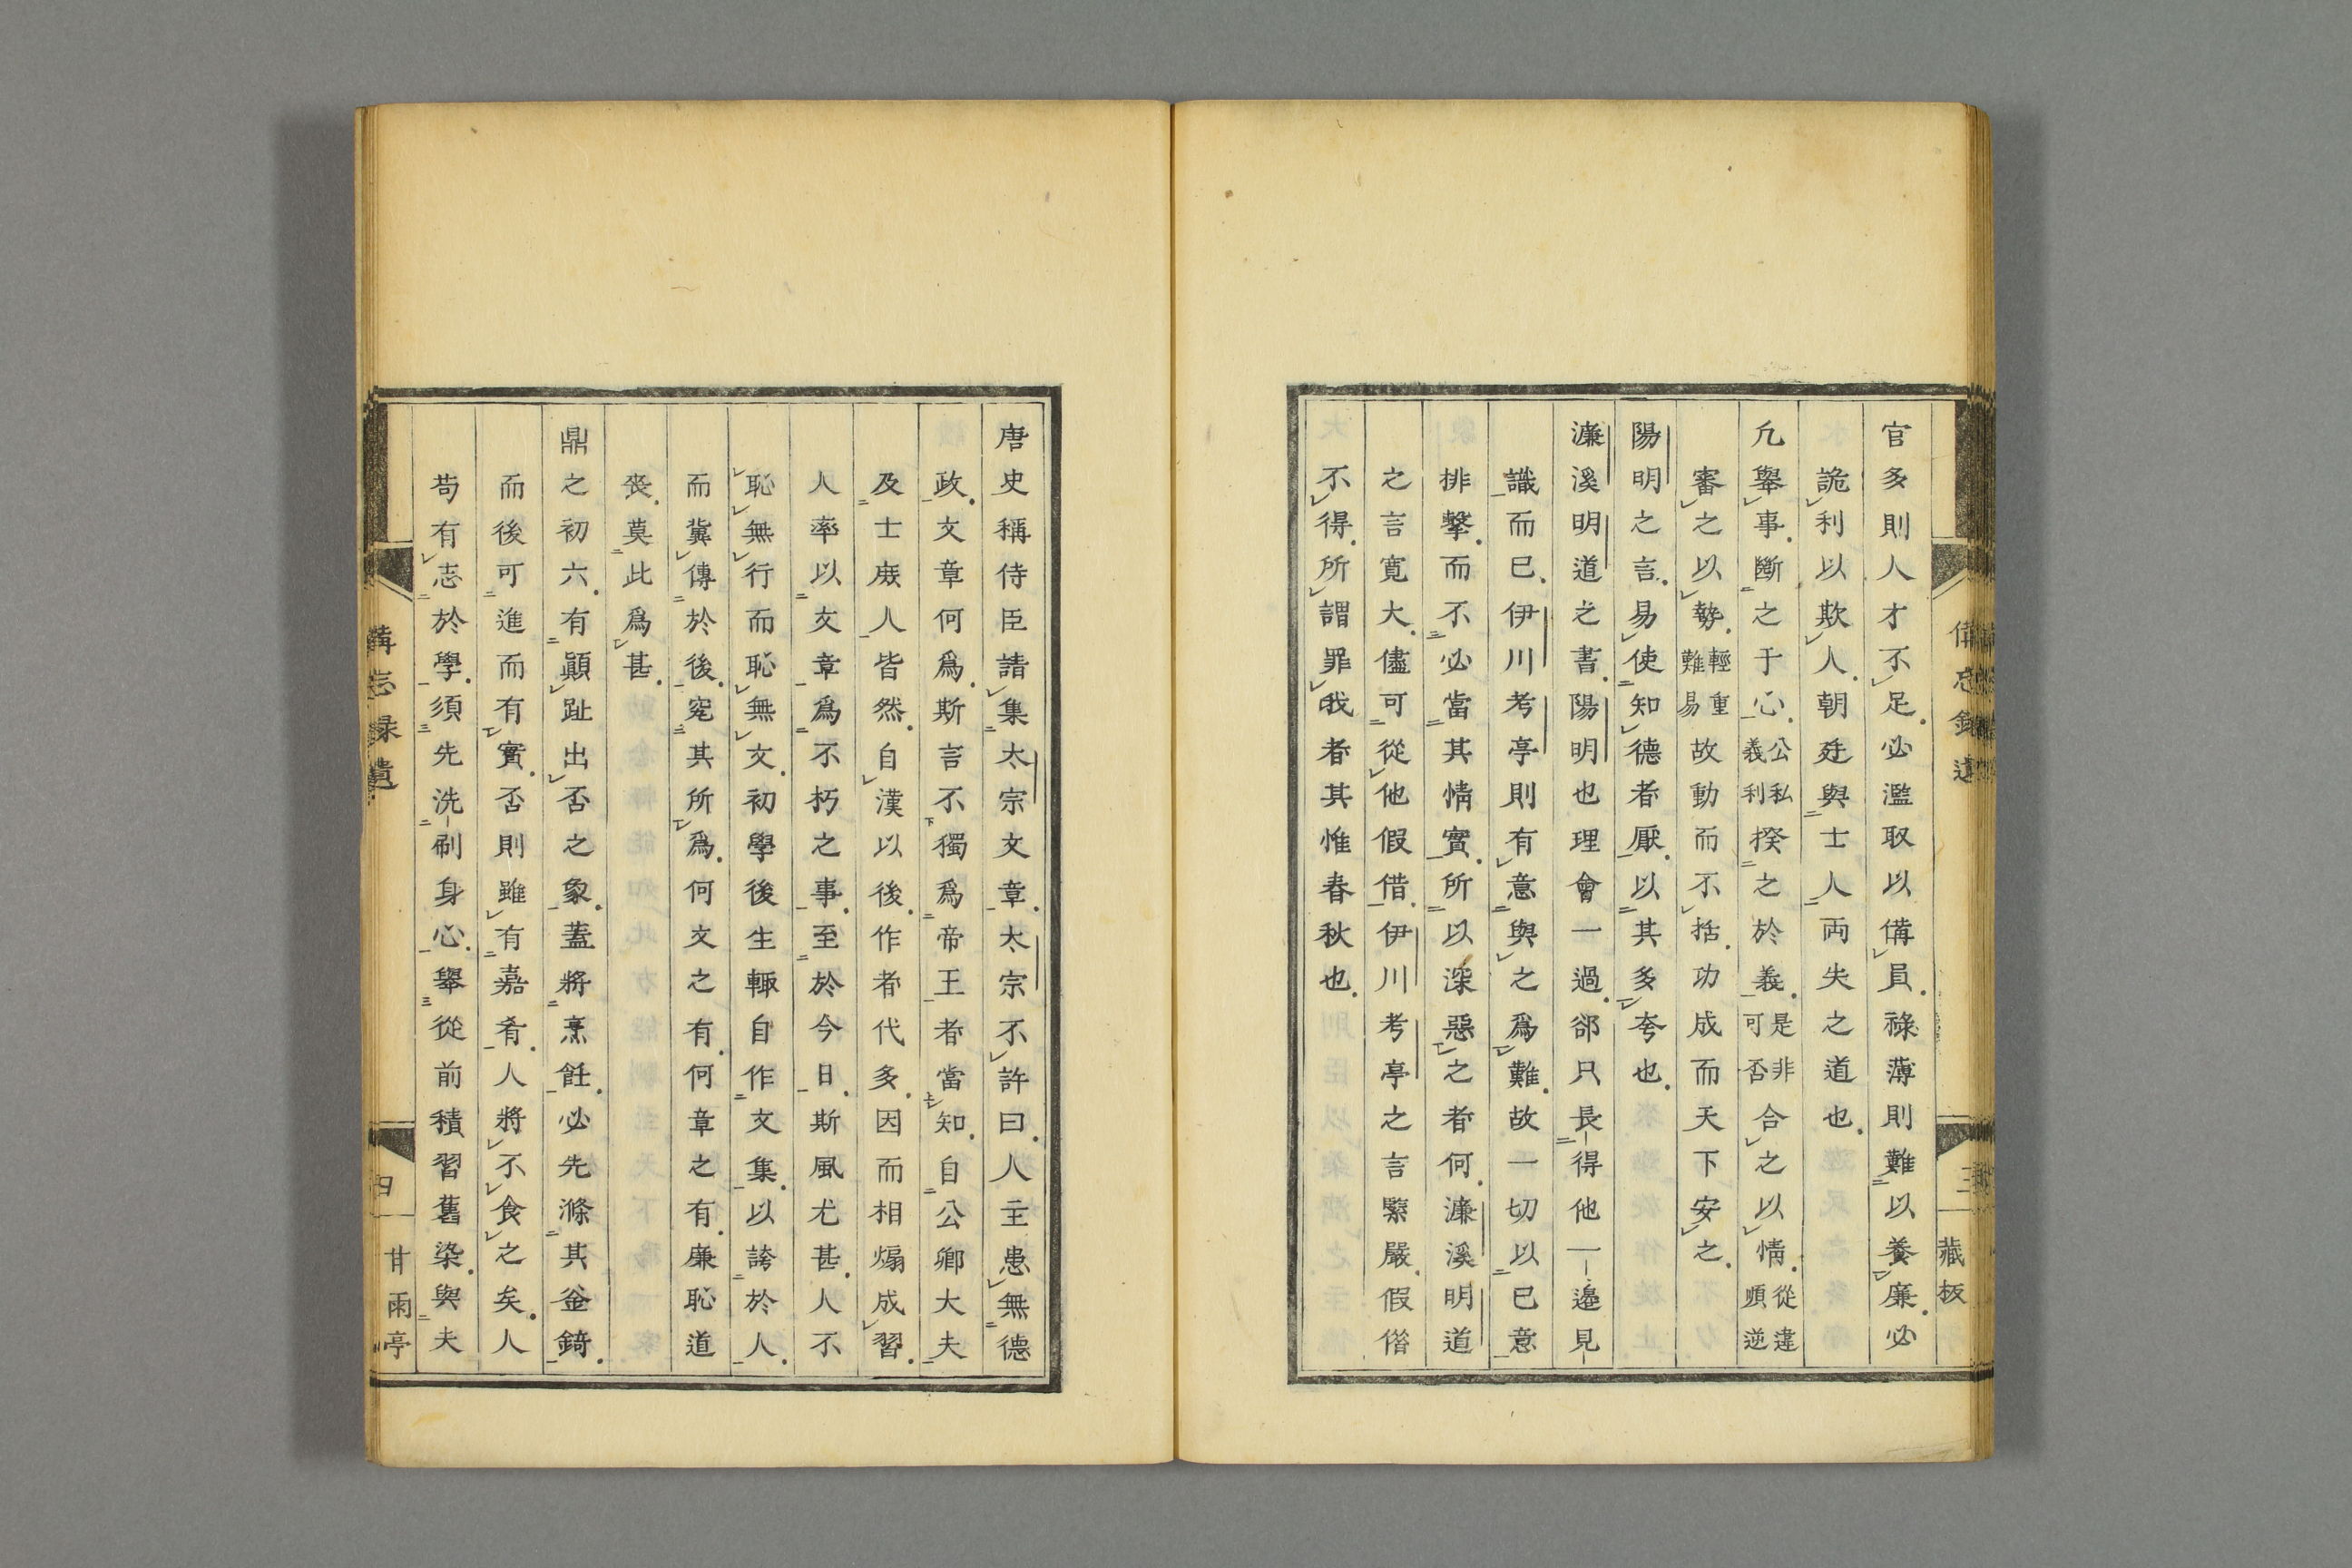 官多則人才不足必濫取以備員祿薄則難以養廉必
詭利以欺人朝廷與士人両失之道也
凢舉事斷之于心公私義利揆之於義是非可否合之以情從違順逆
審之以勢輕重難易故動而不括功成而天下安之
陽明之言易使知德者厭以其多夸也
濂溪明道之書陽明也理會一過郤只長得他一邉見
識而已伊川考亭則有意與之爲難故一切以已意
排擊而不必當其情實所以深惡之者何濂溪明道
之言寛大儘可從他假借伊川考亭之言緊嚴假借
不得所謂罪我者其惟春秋也
三
藏板
唐史稱侍臣請集太宗文章太宗不許曰人主患無德
政文章何爲斯言不獨爲帝王者當知自公卿大夫
及士庶人皆然自漢以後作者代多因而相煽成習
人率以文章爲不朽之事至於今日斯風尤甚人不
恥無行而恥無文初學後生輙自作文集以誇於人
而冀傳於後究其所爲何文之有何章之有廉恥道
喪莫此爲甚
鼎之初六有顚趾出否之象蓋將烹飪必先滌其釜錡
而後可進而有實否則雖有嘉肴人將不食之矣人
苟有志於學須先洗刷身心舉從前積習舊染與夫
備忘録遺
四
甘雨亭